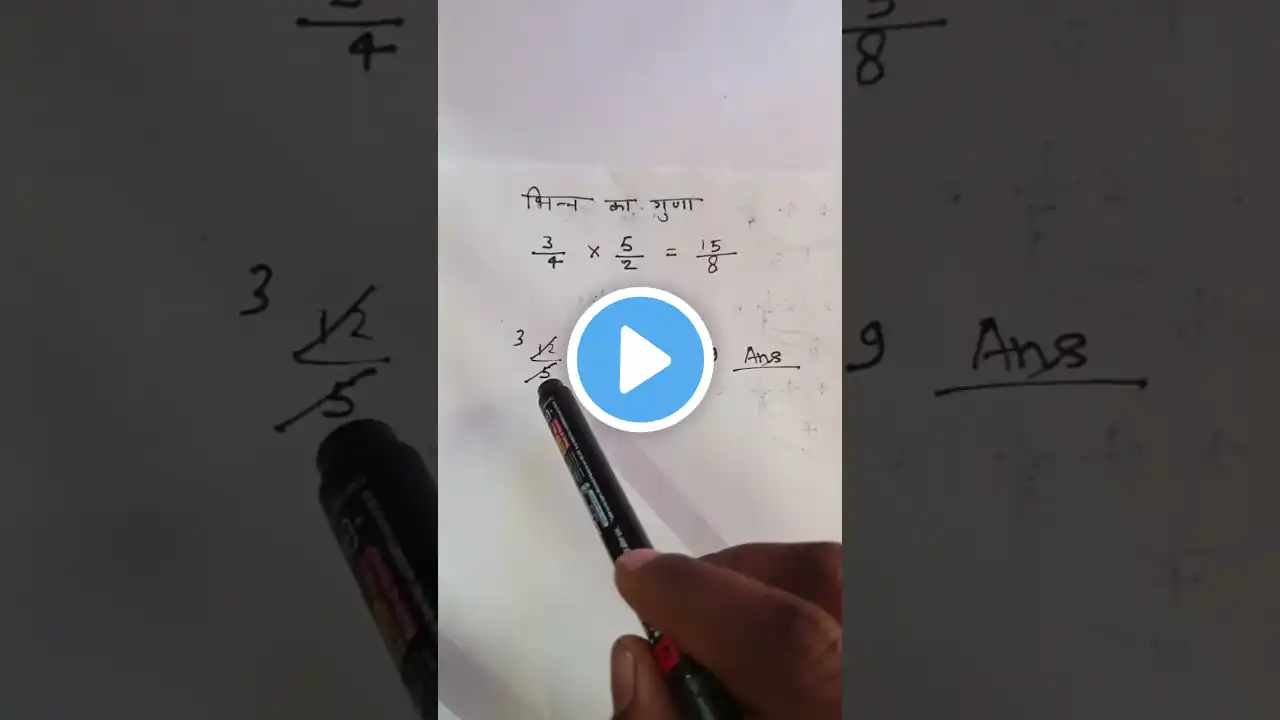 भिन्न का गुणा
3/4 × 5/2 = 15/8
3 12/5 9 Ans